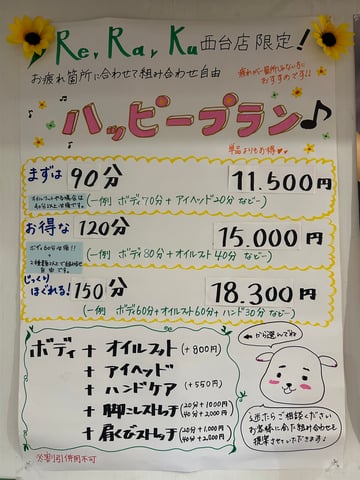 Re.Ra.Ku西台店限定!
お疲れ箇所に合わせて組み合わせ自由
疲れが一箇所じゃない方に
おすすめです!!
ハッピープラン♪
単品よりもお得♥♥
まずは 90分 11.500円
オイルフットやる場合は
40分以上必須です。
(一例 ボディ70分+アイヘッド20分 など…)
お得な 120分 15.000円
ボディ60分必須!!
+
2種類以上で組み合わせ
自由です。
(一例 ボディ80分+オイルフット40分 など…)
じっくり
ほぐれる! 150分 18.300円
(一例 ボディ60分+オイルフット60分+ハンド30分 など…)
ボディ + オイルフット (+800円)
+ アイヘッド
+ ハンドケア (+550円)
+ 脚こしストレッチ (20分+1000円)
(40分+2,000円)
+ 肩くびストレッチ (20分+1,000円)
(40分+2,000円)
←から選んでね
迷ったらご相談ください
お客様に合った組み合わせを
提案させていただきます♪
※割引併用不可